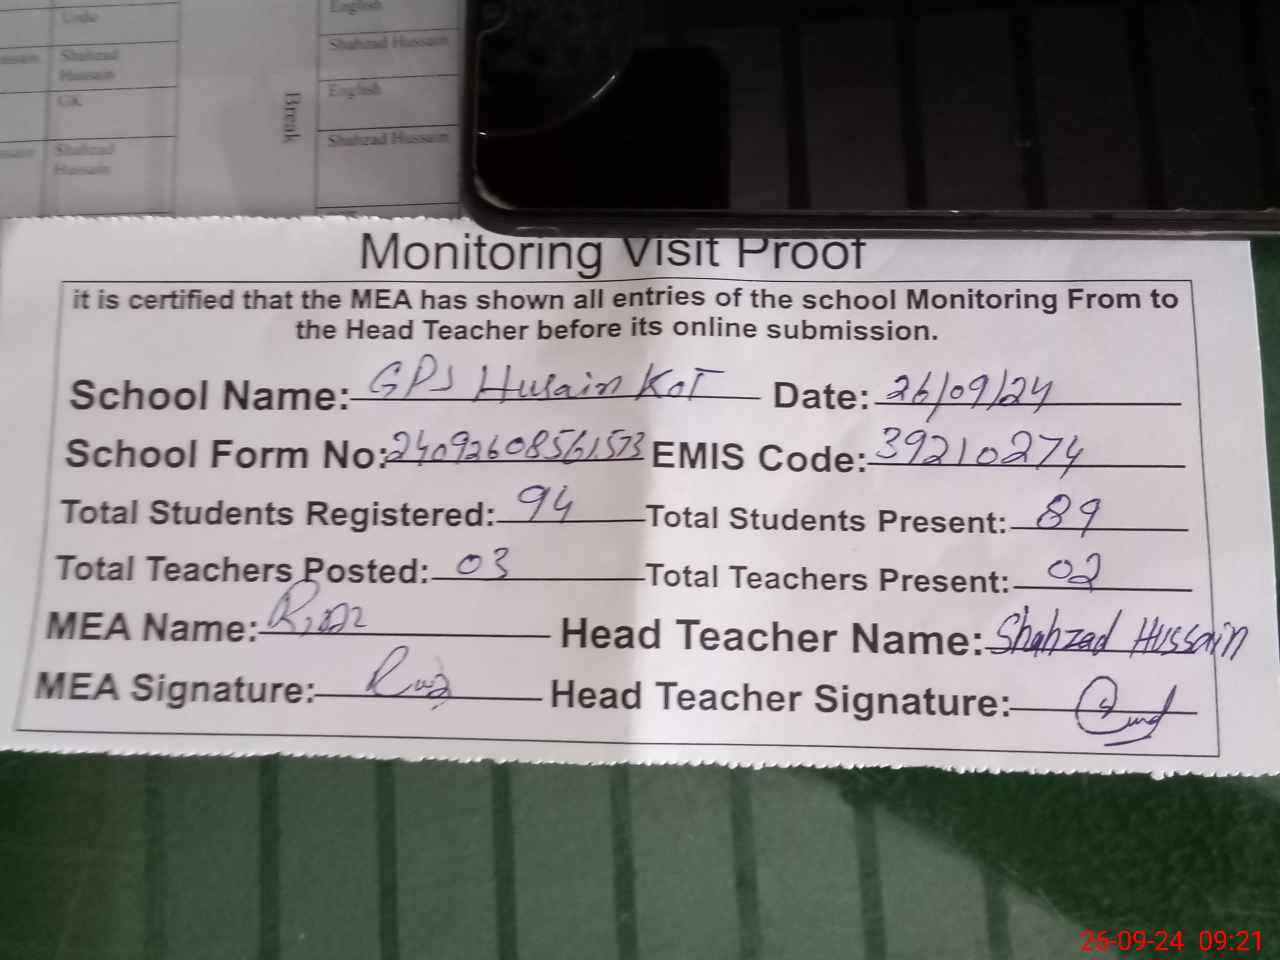 Urdu
English
Shahzad Hussain
Shahzad Hussain
GK
English
Break
Shahzad Hussain
Shahzad Hussain
Monitoring Visit Proof
it is certified that the MEA has shown all entries of the school Monitoring From to
the Head Teacher before its online submission.
School Name: GPS Husain Kot Date: 26/09/24
School Form No: 24092608561573 EMIS Code: 39210274
Total Students Registered: 94 Total Students Present: 89
Total Teachers Posted: 03 Total Teachers Present: 02
MEA Name: Riaz Head Teacher Name: Shahzad Hussain
MEA Signature: Head Teacher Signature:
26-09-24 09:21